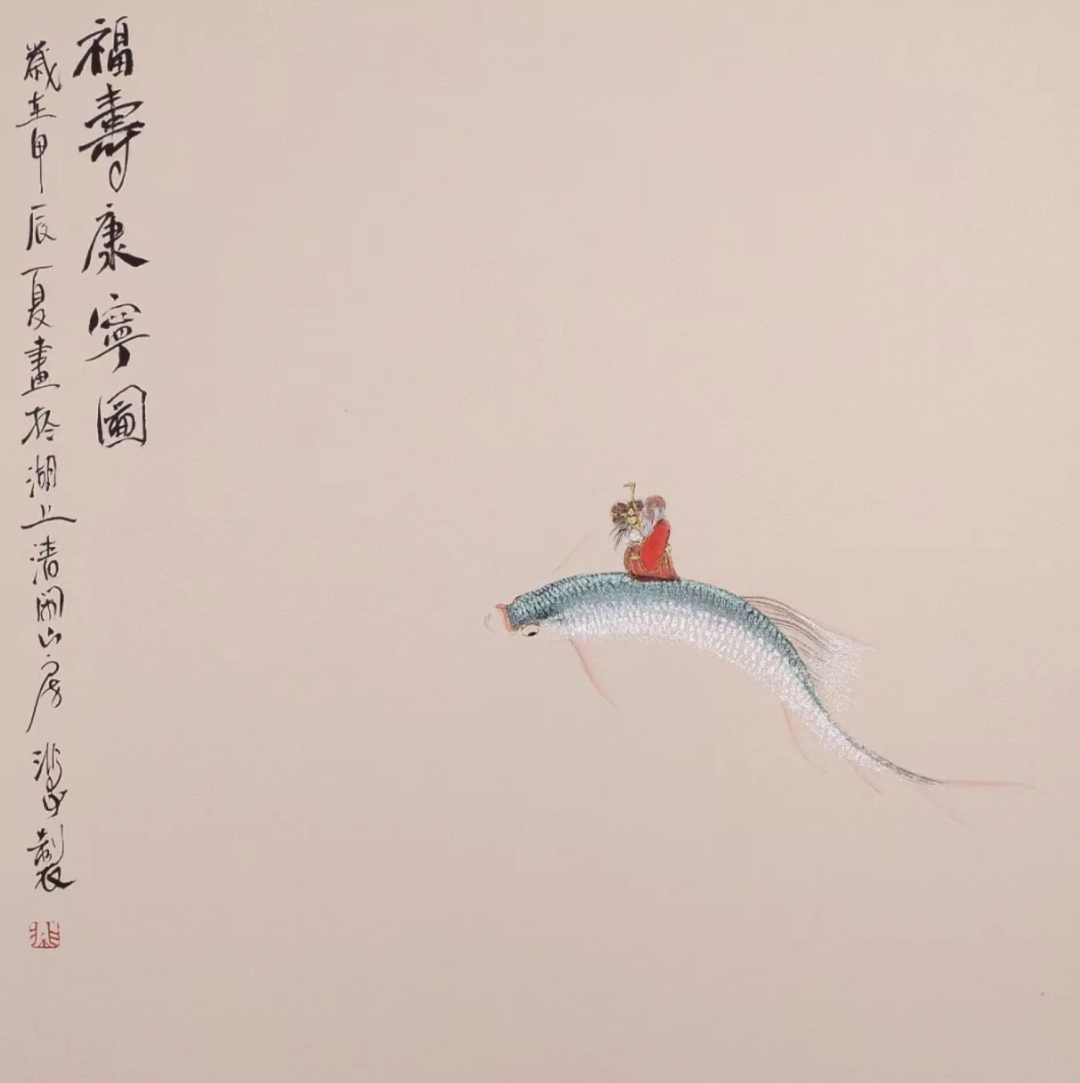 福壽康寧圖
歲在甲辰夏畫於湖上清閑山房 製